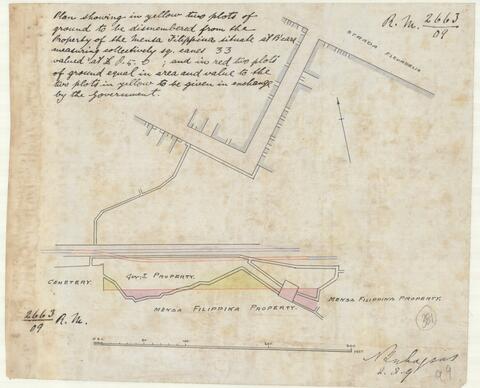 Plan showing in yellow two plots of
ground to be dismembered from the
Property of the Mensa Filippina situate at
measuring collectively sq. canes 33
valued at £ ; and in red two plots
of ground equal in area and value to the
two plots in yellow to be given in exchange
by the Government.
R. M. 2663
09
STRADA
CEMETERY.
GOV.T PROPERTY.
MENSA FILIPPINA PROPERTY.
MENSA FILIPPINA PROPERTY.
2663 R. M.
09
381
FEET
2. 8. 9
99